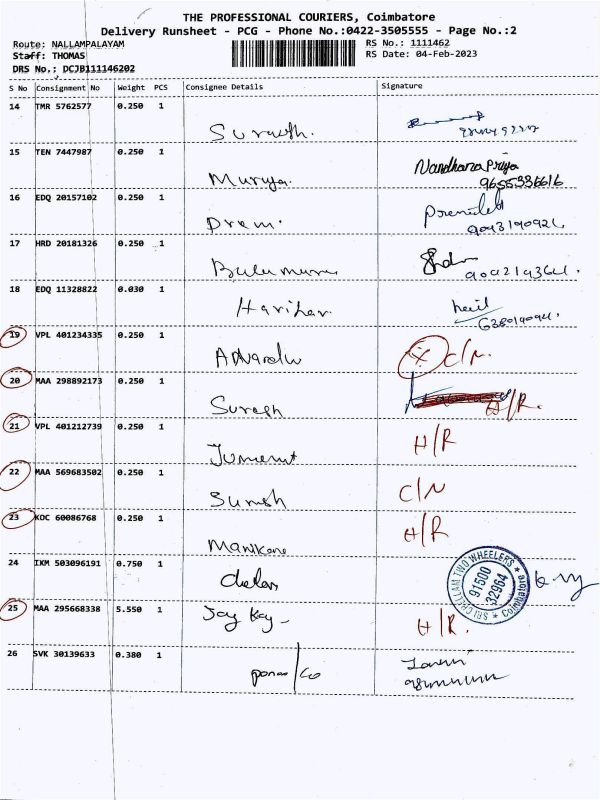 THE PROFESSIONAL COURIERS, Coimbatore
Delivery Runsheet - PCG - Phone No.:0422-3505555 - Page No.:2
Route: NALLAMPALAYAM RS No.: 1111462
Staff: THOMAS RS Date: 04-Feb-2023
DRS No.: DCJB111146202
S No Consignment No Weight PCS Consignee Details Signature
14 TMR 5762577 0.250 1
Suresh.
15 TEN 7447987 0.250 1 Nandhana Priya
Muruga. 9655336616
16 EDQ 20157102 0.250 1
Prem.
17 HRD 20181326 0.250 1
Balamuru
18 EDQ 11328822 0.030 1
Harihar.
19 VPL 401234335 0.250 1
C/N.
20 MAA 298892173 0.250 1
Suresh H/R.
21 VPL 401212739 0.250 1
H/R
22 MAA 569683502 0.250 1
Suresh C/N
23 KDC 60086768 0.250 1
Manikan H/R
24 IKM 503096191 0.750 1
SRI CHELLAM TWO WHEELERS * Coimbatore *
91500
32964
25 MAA 295668338 5.550 1
Jay Kay - H/R.
26 SVK 30139633 0.380 1